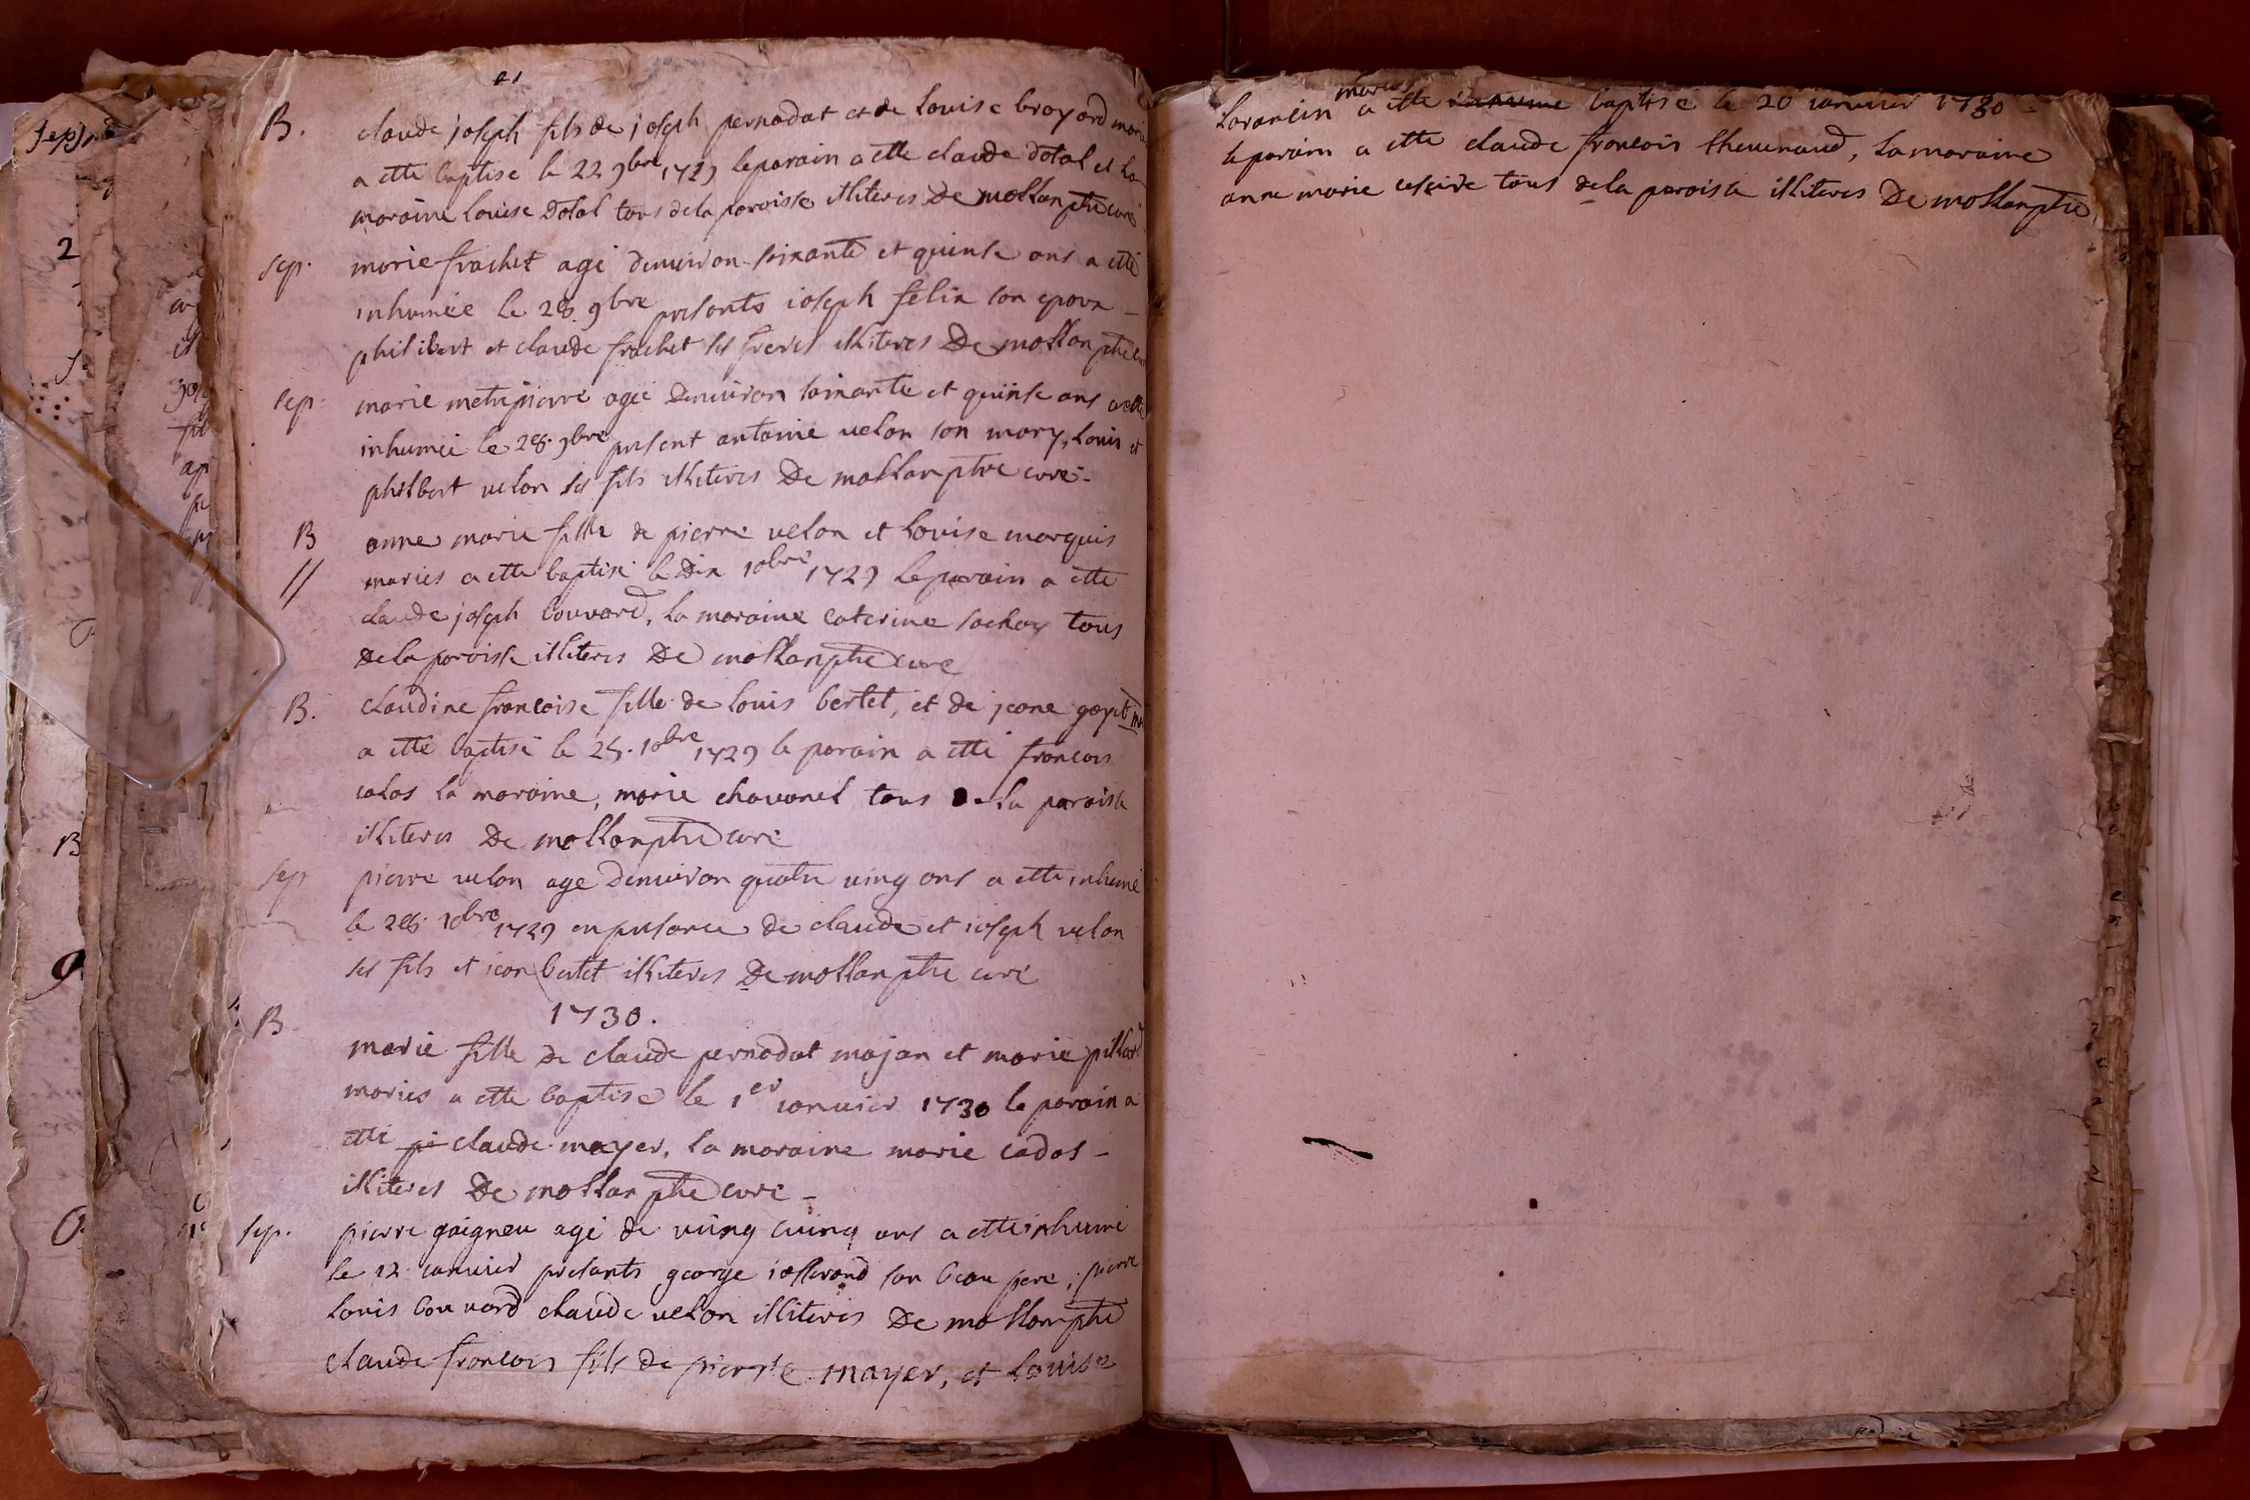 B. claude joseph fils de joseph pernodat et de Louise broyard marie
a ette baptise le 22 9bre 1729 le parain a ette claude dotal et la
maraine Louise dotal tous de la paroisse illiteres De mollanptre curé
sep. marie frachet agé denuiron soixante et quinse ans a etté
inhumée le 28. 9bre presents ioseph felix son epoux
philibert et claude frachet ses freres illiteres De mollanptre
sep. marie metrepierre ageé denuiron soixante et quinse ans a ette
inhumeé le 28. 9bre present antoine uelon son mary, Louis et
philbert uelon ses fils illiteres De mollanptre curé
B anne marie fille de pierre uelon et Louise marquis
maries a ette baptisé le Dix 10bre 1729 le parain a ette
claude joseph bouuard, la maraine caterine sachay tous
de la paroisse illiteres De mollanptre curé
B. claudine francoise fille de Louis bertet, et de jeane
a etté baptisé le 28. 10bre 1729 le parain a etté francois
cados la maraine, marie chauanel tous de la paroisse
illiteres De mollanptre curé
sep pierre uelon age denuiron quatre uing ans a ette inhumé
le 28. 10bre 1729 en presance de claude et ioseph uelon
ses fils et jean bertet illiteres De mollanptre curé
1730.
B marie fille de claude pernodat majan et marie pillard
maries a ette baptise le 1er ianuier 1730 le parain a
etté pi claude mayer, la maraine marie cados
illiteres De mollanptre curé
sep. pierre gaigneu agé de uuing cuinq ans a ette inhumé
le 12 ianuier presants george iasserand son beau pere, pierre
Louis bouuard claude uelon illiteres De mollanptre
claude francois fils de pierre mayer, et Louise
Larancin maries a ette baptisé le 20 ianuier 1730
le parain a ette claude francois theuenaud, la maraine
anne marie tous de la paroisse illiteres De mollanptre